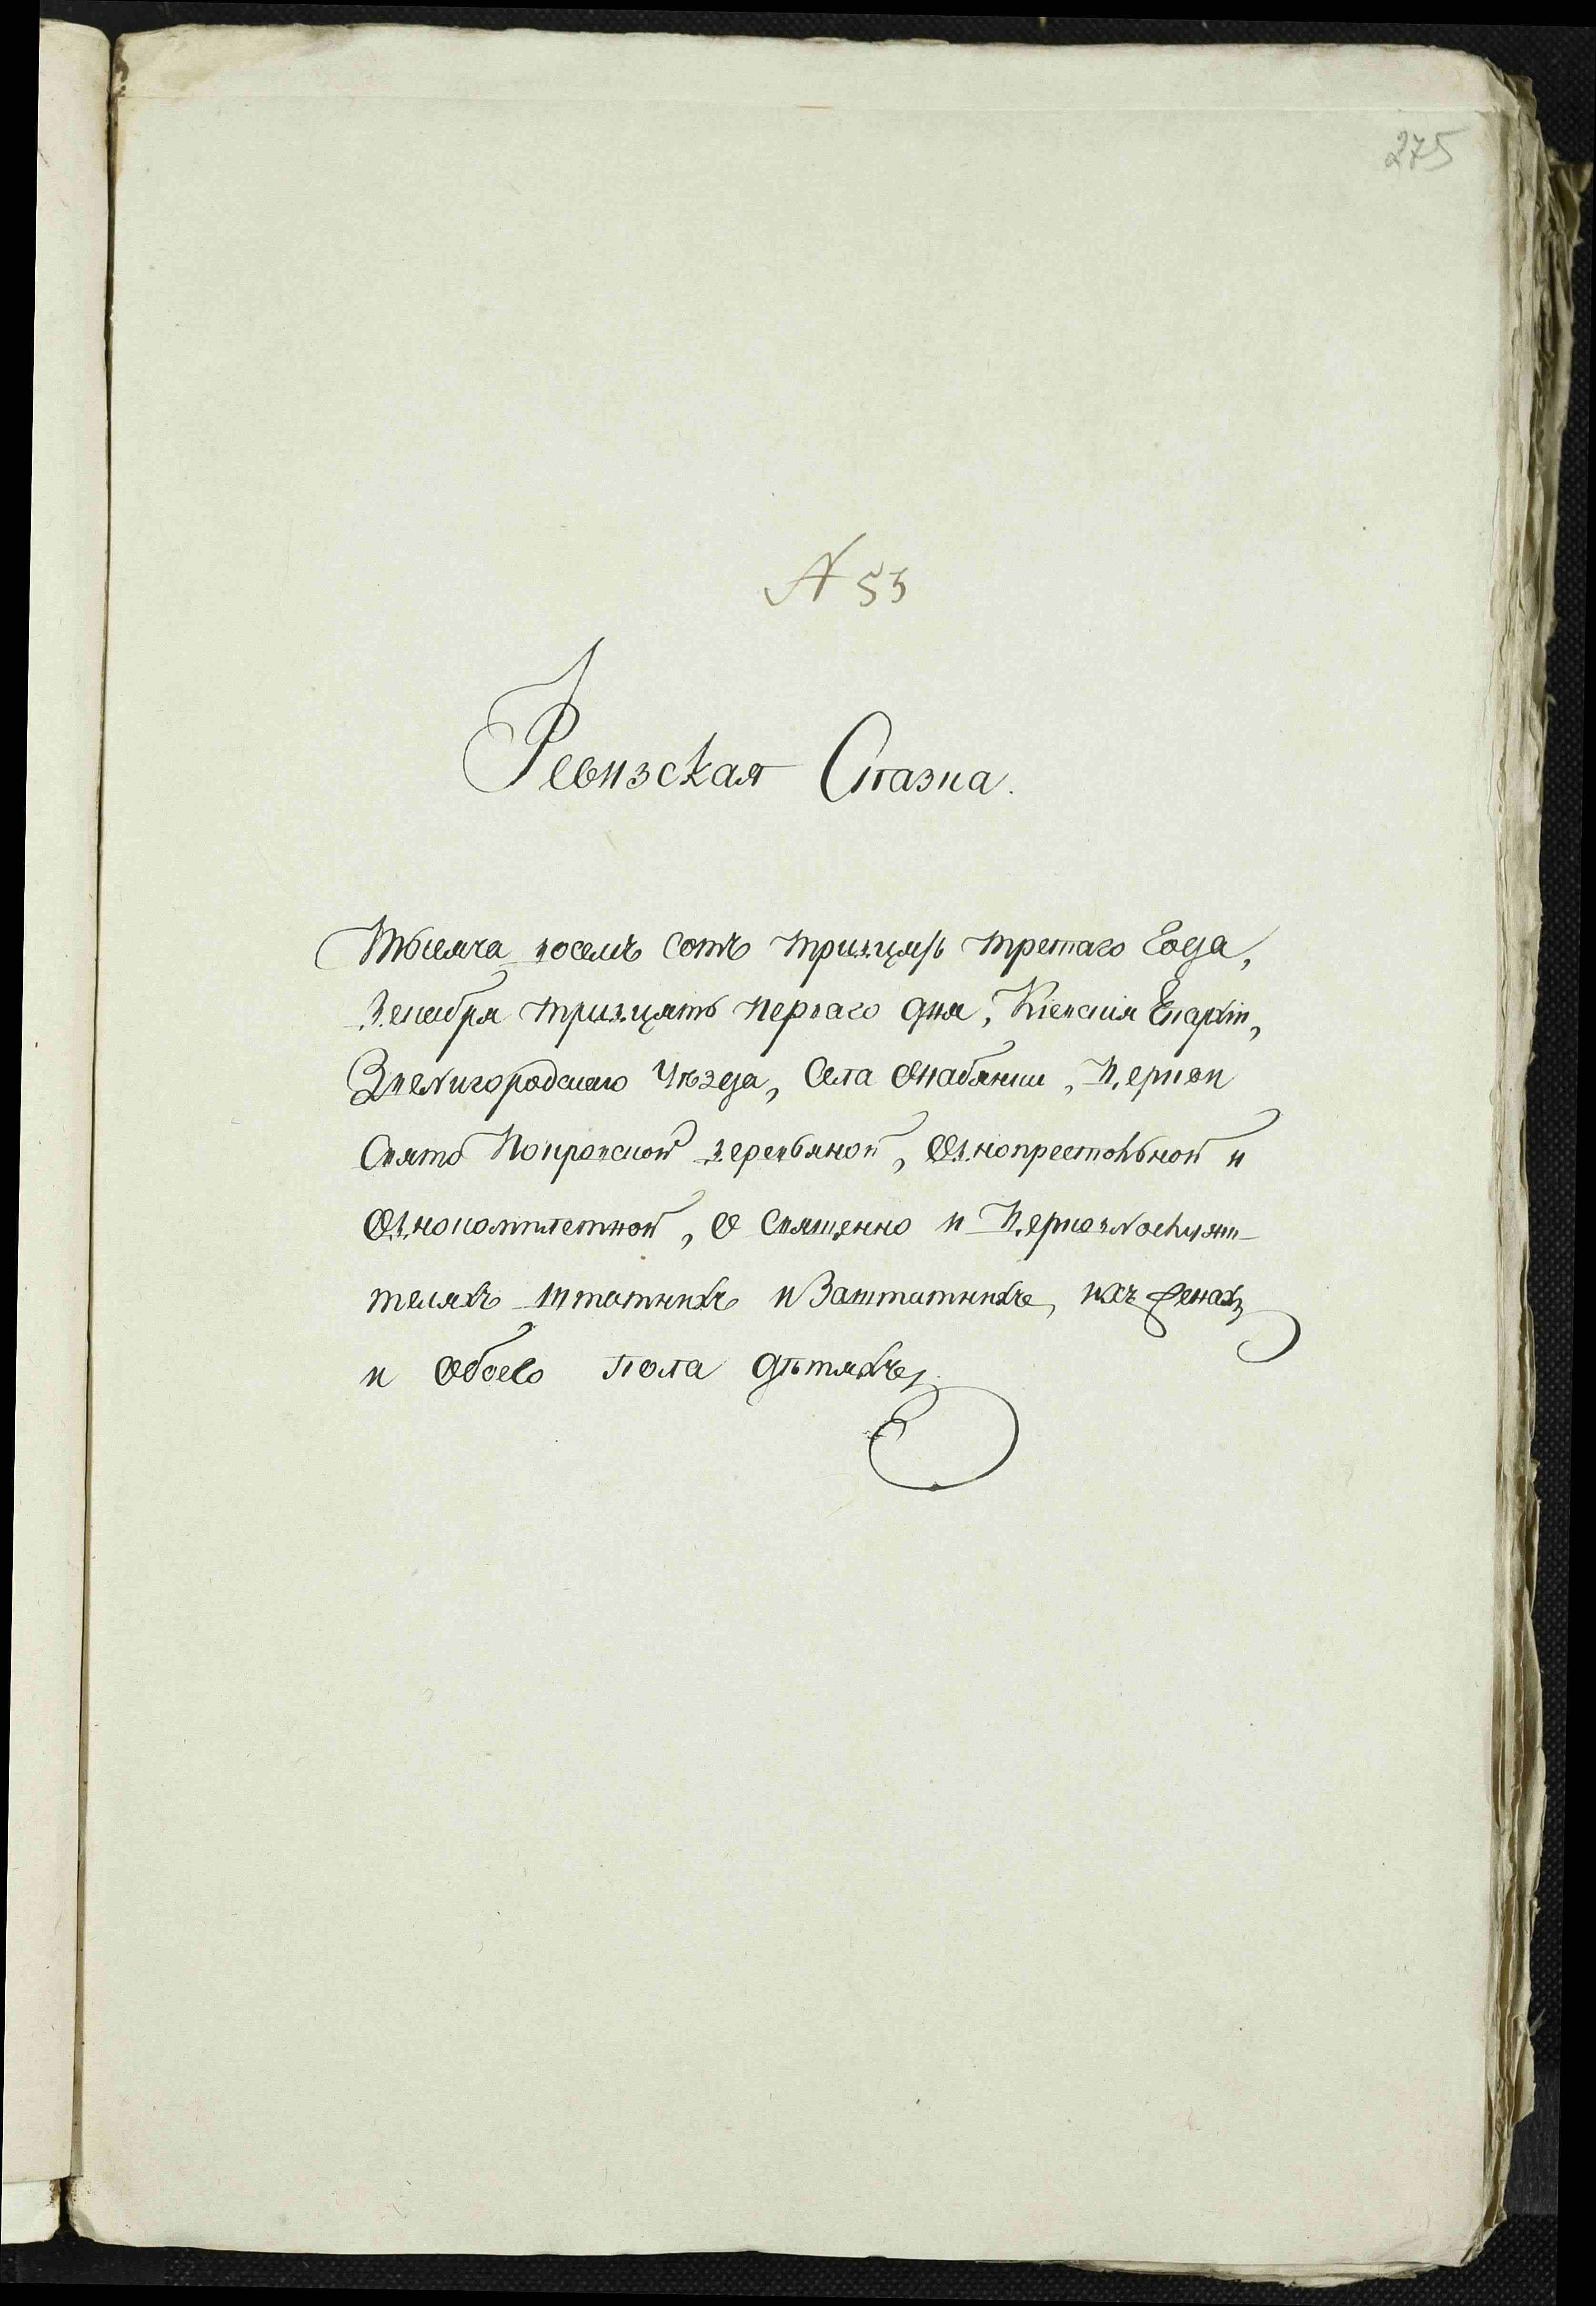 275
№ 53
Ревизская Сказка.
Тысяча восемъ сотъ тридцать третаго Года,
Декабря тридцать перваго дня, Кіевскія Епархіи,
Звенигородскаго Уѣзда, Села Скабянки, Церкви
Свято Покровской деревьяной, Однопрестольной и
Однокомплетной, О Священно и Церковнослужи-
теляхъ штатныхъ и Заштатныхъ, ихъ женахъ
и Обоего пола дѣтяхъ,